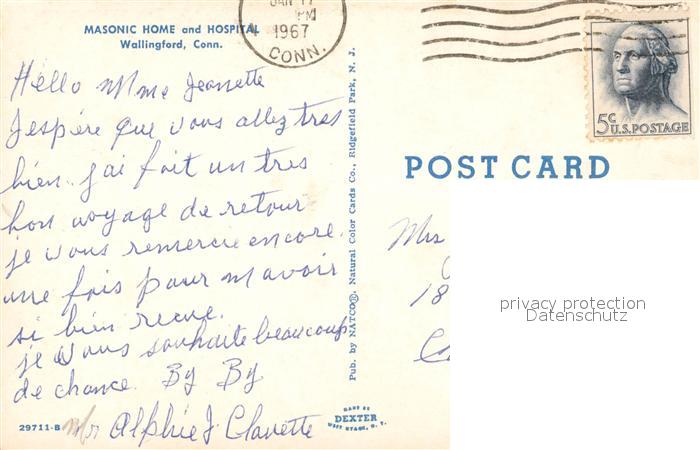 MASONIC HOME and HOSPITAL
Wallingford, Conn.
JAN 17
PM
1967
CONN.
5c
U.S. POSTAGE
Hello Mme Jeanette
J'espère que vous allez tres
bien. j'ai fait un tres
bon voyage de retour
je vous remercie encore.
une fois pour m'avoir
si bien recue.
je vous souhaite beaucoup
de chance. By By
Mr Alphie J. Clavette
29711-B
Pub. by NATCO®, Natural Color Cards Co., Ridgefield Park, N. J.
DEXTER
WEST NYACK, N. Y.
POST CARD
Mrs
18
privacy protection
Datenschutz